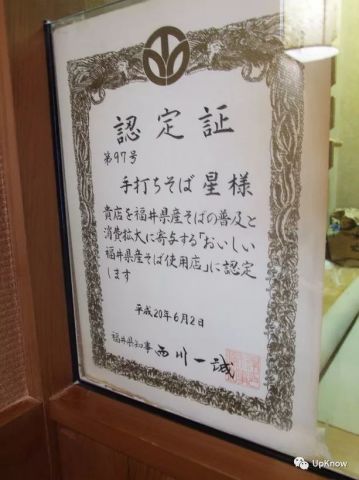 認定証
第97号
手打ちそば星様
貴店を福井県産そばの普及と
消費拡大に寄与する「おいしい
福井県産そば使用店」に認定
します
平成20年6月2日
福井県知事 西川一誠
UpKnow